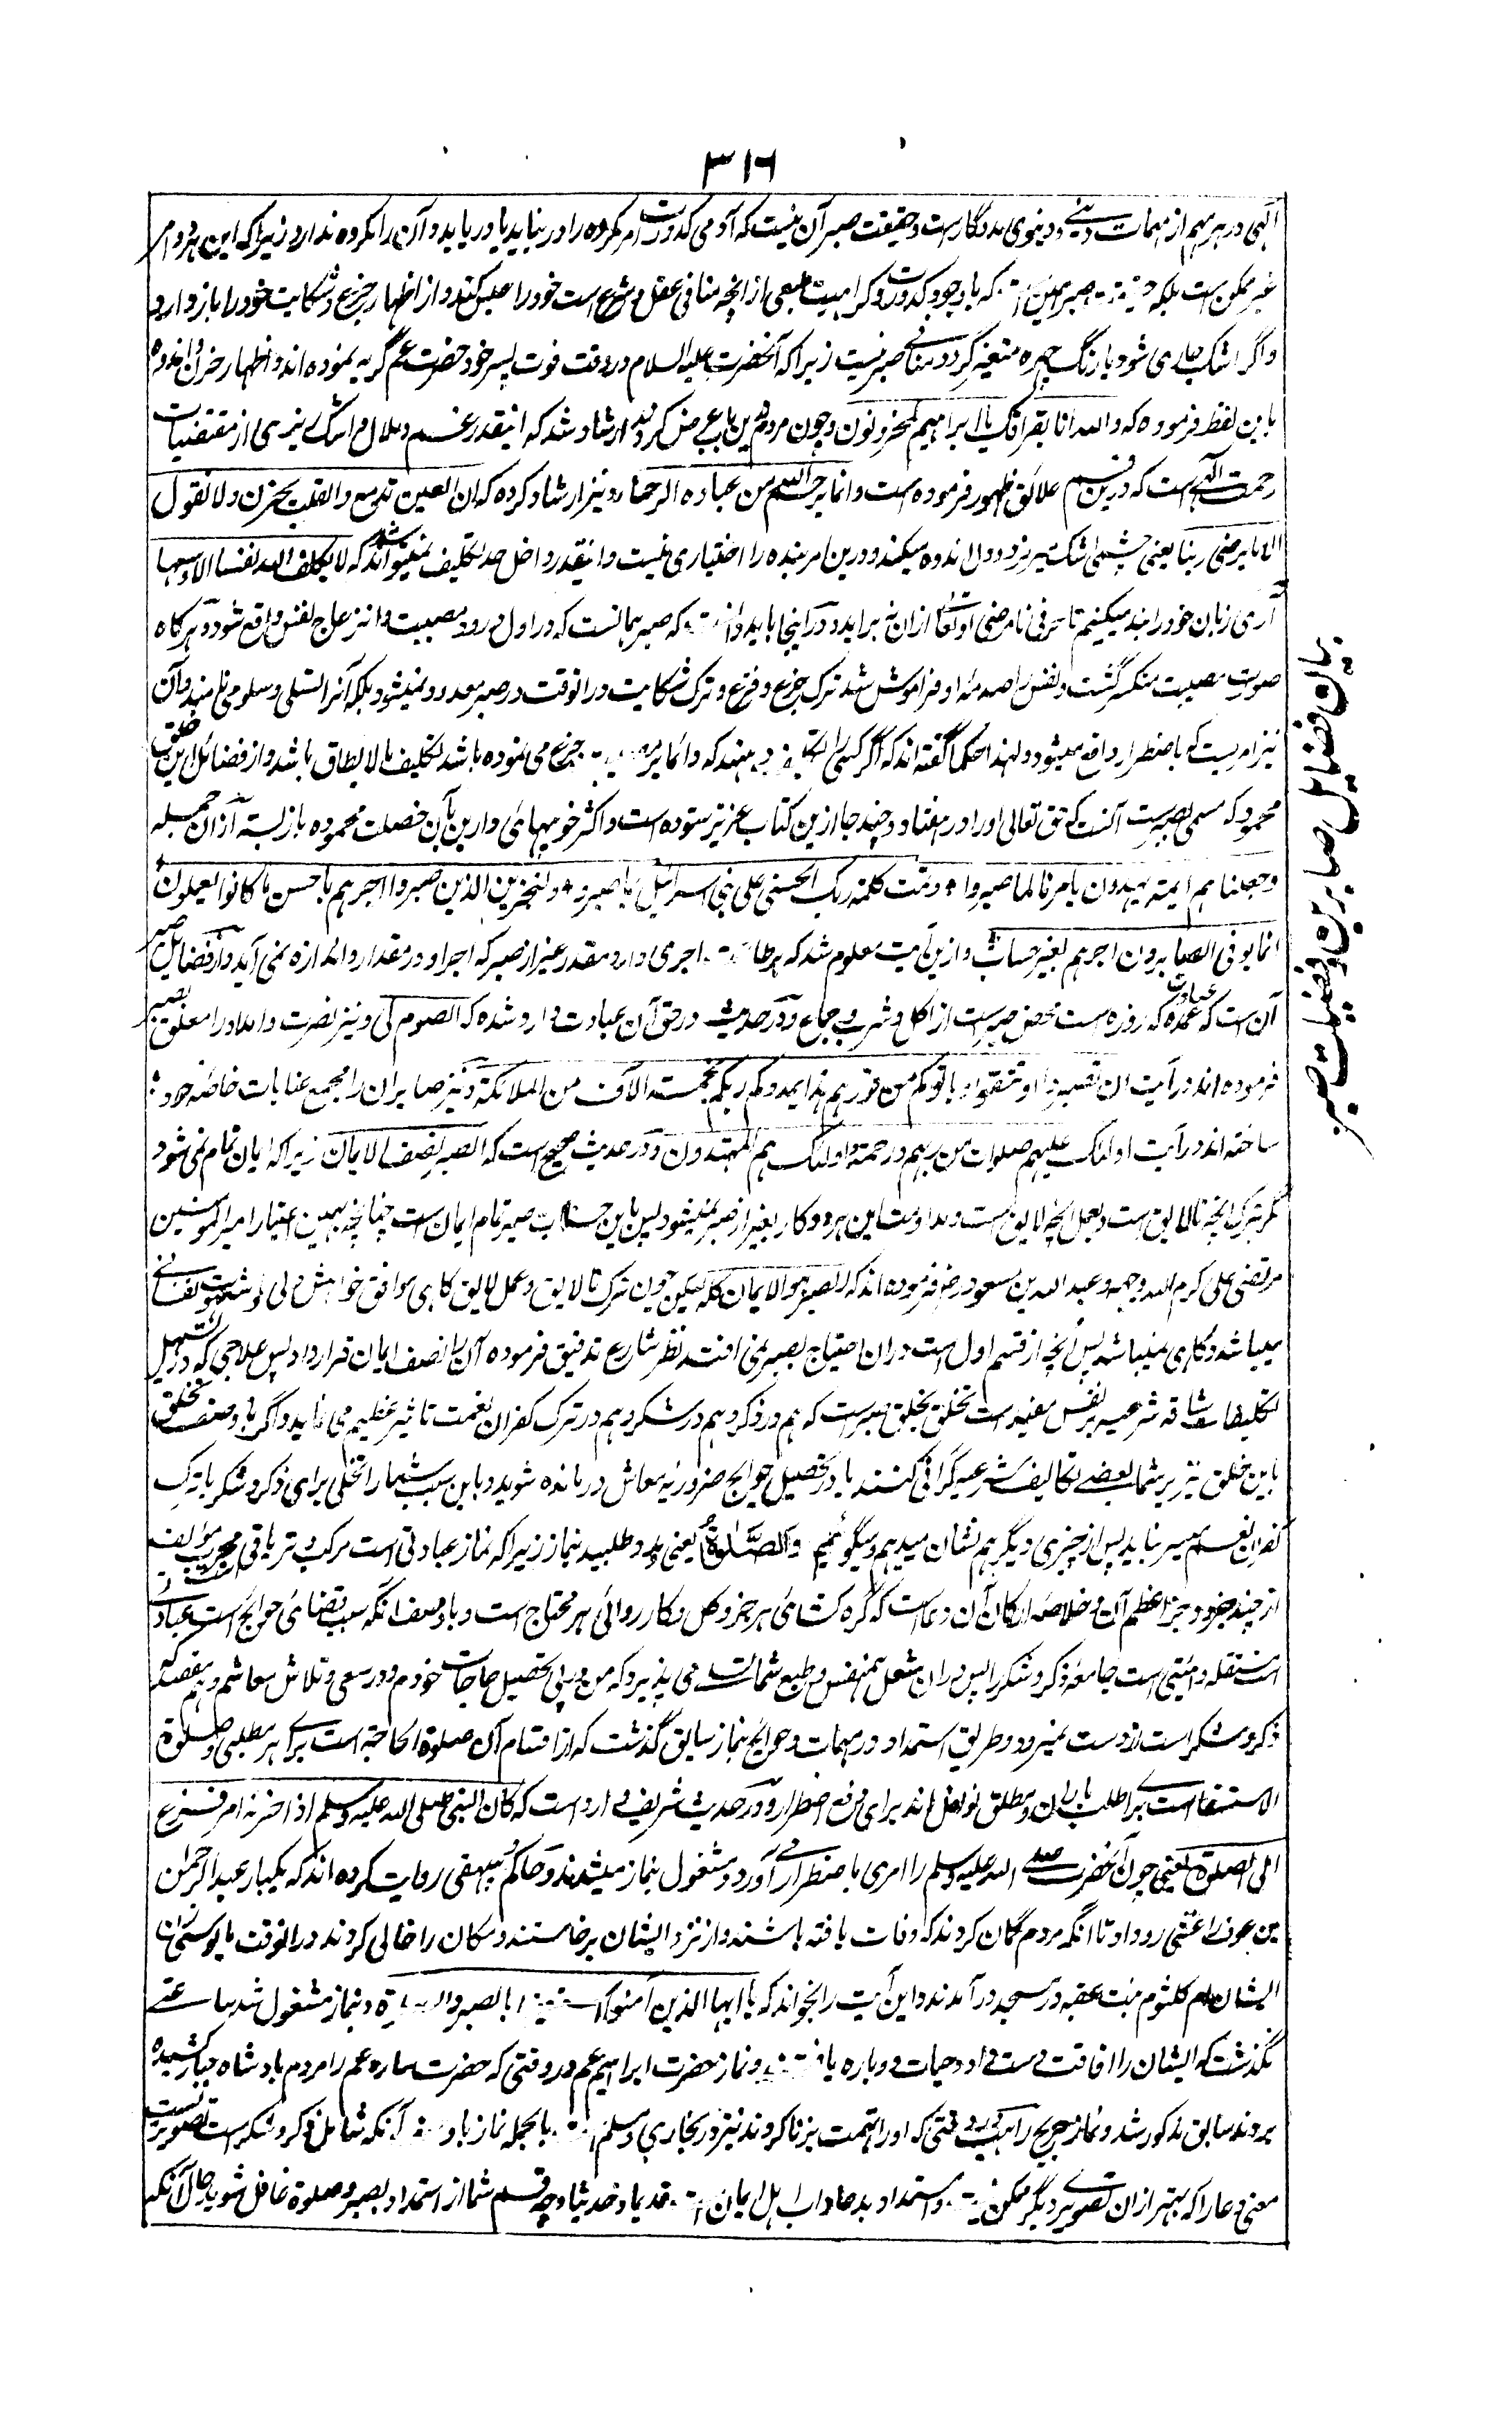 ۳۱۶
الٰهی در هر مهم از مهمات دینی و دنیوی مددگار است و حقیقت صبر آن نیست که آدمی کدورت امر مکروه را در نیابد یا دریابد و آن را مکروه ندارد زیرا که این هر دو امر
غیر ممکن است بلکه حقیقت صبر همین است که با وجود کدورت و کراهیت طبعی از انچه منافی عقل و شرع است خود را حبس کند و از اظهار جزع و شکایت خود را باز دارد
و اگر اشک جاری شود یا رنگ چهره متغیر گردد منافی صبر نیست زیرا که آنحضرت علیه السلام در وقت فوت پسر خود حضرت عم گریه نموده اند و اظهار حزن و اندوه
باین لفظ فرموده که والله انا بفراقک یا ابراهیم لمحزونون و چون مردم درین باب عرض کردند ارشاد شد که اینقدر غم و ملال و اشک ریزی از مقتضیات
رحمت الٰهی است که درین قسم علائق ظهور فرموده است و انما یرحم الله من عباده الرحماء و نیز ارشاد کرده که ان العین تدمع و القلب یحزن ولا نقول
الا ما یرضی ربنا یعنی چشم اشک میریزد و دل اندوه میکند و درین امر بنده را اختیاری نیست و اینقدر داخل حد تکلیف نمیتواند شد که لا یکلف الله نفسا الا وسعها
آری زبان خود را بند میکنیم تا حرفی نامرضی او تعالی ازان نه براید و در اینجا باید دانست که صبر همانست که در اول ورود مصیبت و انزعاج نفس واقع شود و هرگاه
صورت مصیبت منکسر گشت و نفس را صدمهٔ او فراموش شد ترک جزع و فزع و ترک شکایت درانوقت در صبر معدود نمیشود بلکه آنرا تسلی و سلو می نامند و آن
نیز امریست که باضطرار واقع میشود و لهذا حکما گفته اند که اگر کسی را تکلیف دهند که دائما بر مصیبت جزع می نموده باشد تکلیف ما لا یطاق باشد و از فضائل این خلق
محمود که مسمی بصبر است آنست که حق تعالی او را در هفتاد و چند جا ازین کتاب عزیز ستوده است و اکثر خوبیهای دارین بآن خصلت محموده باز بسته ازان جمله
وجعلناهم ایمة یهدون بامرنا لما صبروا ٭ وتمت کلمة ربک الحسنی علی بنی اسرائیل بما صبروا ٭ ولنجزین الذین صبروا اجرهم باحسن ما کانوا یعملون
انما یوفی الصابرون اجرهم بغیر حساب و ازین آیت معلوم شد که هر طاعت اجری دارد مقدر غیر از صبر که اجر او در مقدار و اندازه نمی آید و از فضائل صبر
آن است که عمده عبادت که روزه است محض صبر است از اکل و شرب و جماع و در حدیث در حق آن عبادت وارد شده که الصوم لی و نیز نصرت و امداد را معلق بصبر
فرموده اند در آیت ان تصبروا و تتقوا و یاتوکم من فورهم هذا یمددکم ربکم بخمسة الآف من الملائکة و نیز صابران را مجمع عنایات خاصهٔ خود
ساخته اند در آیت اولئک علیهم صلوات من ربهم ورحمة واولئک هم المهتدون و در حدیث صحیح است که الصبر نصف الایمان زیرا که ایمان تمام نمی شود
مگر بترک انچه نالایق است و بعمل انچه لایق است و مداومت این هر دو کار بغیر از صبر نمیشود پس باین حساب صبر تمام ایمان است چنانچه بهمین اعتبار امیر المومنین
مرتضی علی کرم الله وجهه و عبد الله بن مسعود رض فرموده اند که الصبر هو الایمان کله لیکن چون ترک نالایق و عمل لایق گاهی موافق خواهش دلی و شهوت نفسانی
میباشد و گاهی نمیباشد پس انچه از قسم اول است دران احتیاج بصبر نمی افتد نظر شارع تدقیق فرموده آن را نصف ایمان قرار داد پس علاجی که در تسهیل
تکلیفات شاقه شرعیه بر نفس مفید است تخلق بخلق صبر است که هم در ذکر و هم در شکر و هم در ترک کفران نعمت تاثیر عظیم می نماید و اگر با وصف تخلق
باین خلق نیز بر شما بعضے تکالیف شرعیه گرانی کنند یا در تحصیل حوائج ضروریه معاش درمانده شوید و باین سبب شما را تخلی برای ذکر و شکر یا ترک
کفران نعم میسر نیاید پس از چیزی دیگر هم نشان میدهیم و میگوئیم وَالصَّلٰوةِ یعنی مدد طلبید بنماز زیرا که نماز عبادتی است مرکب و تریاقی مجرب مؤلف
از چند جزو و جزء اعظم آن و خلاصهٔ ارکان آن دعا است که گره کشای هر جز و کل و کار روائی هر محتاج است و با وصف انکه سبب قضای حوائج است عبادتی است
مستقله و هیئتی است جامعهٔ ذکر و شکر پس دران شغل نفس و طبع شما تسلی می پذیرد که من در پی تحصیل حاجات خودم و در سعی و تلاش معاشم و هم مقصد که
ذکر و شکر است از دست نمیرود و طریق استمداد در مهمات و حوائج بنماز سابق گذشت که از اقسام آن صلوة الحاجة است برای هر مطلبی و صلوة
الاستسقا است برای طلب باران و مطلق نوافل اند برای رفع اضطرار و در حدیث شریف وارد است که کان النبی صلی الله علیه وسلم اذا احزنه امر فزع
الی الصلوة یعنی چون آنحضرت صلی الله علیه وسلم را امری باضطرار می آورد مشغول بنماز میشدند و حاکم و بیهقی روایت کرده اند که یکبار عبد الرحمٰن
بن عوف را غشی رو داد تا انکه مردم گمان کردند که وفات یافته باشند و از نزد ایشان برخاستند و مکان را خالی کردند درانوقت
ایشان ام کلثوم بنت عقبه در مسجد در آمدند و این آیت را بخواند که یا ایها الذین آمنوا استعینوا بالصبر والصلوة و بنماز مشغول شد ساعتی
نگذشت که ایشان را افاقت دست داد و حیات دوباره یافتند و نماز حضرت ابراهیم عم در وقتی که حضرت ساره عم را مردم بادشاه جبار کشیده
بردند سابق مذکور شد و نماز جریج راهب در وقتی که او را تهمت بزنا کردند نیز در بخاری و مسلم است بالجمله نماز با وصف آنکه شامل ذکر و شکر است تصویریست
معنی دعا را که بهتر ازان تصویری دیگر ممکن نیست و استمداد بدعا داب اهل ایمان است قدیما و حدیثا و چه قسم شما از استمداد بصبر و صلوة غافل شوید حال آنکه
بیان فضایل صابرین و فضیلت صبر